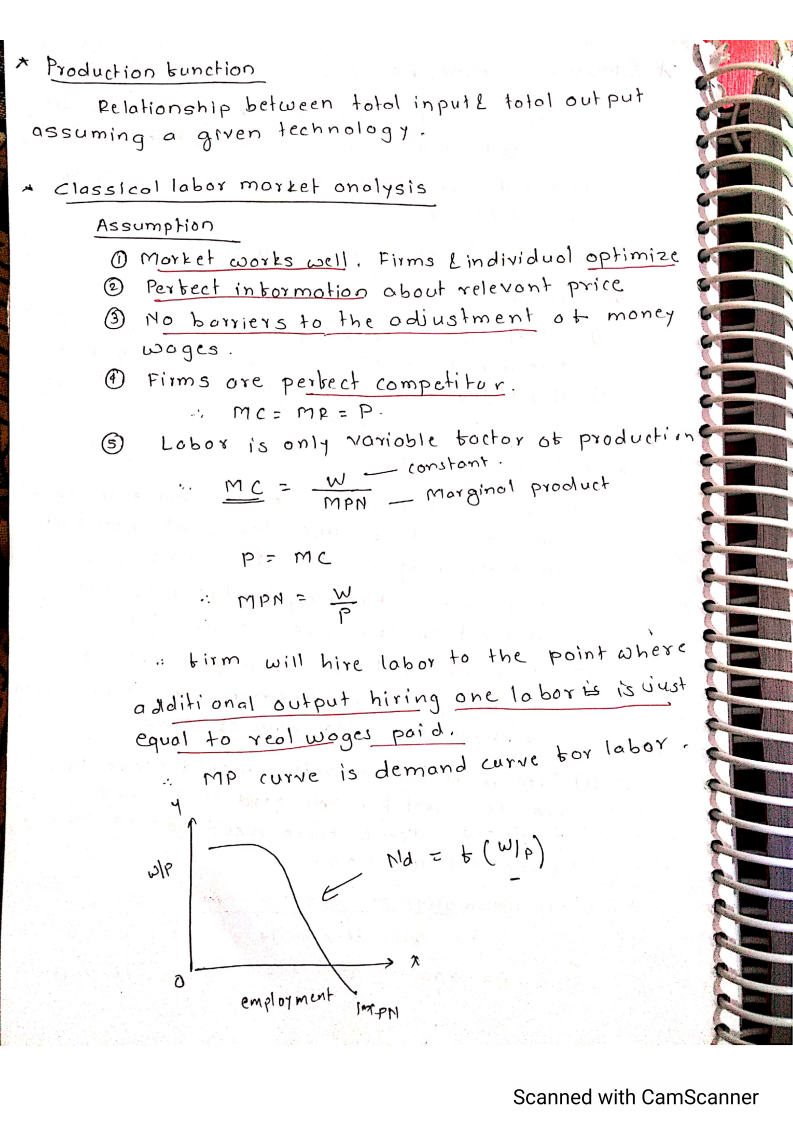 * Production function
Relationship between total input & total output
assuming a given technology.
* Classical labor market analysis
Assumption
① Market works well. Firms & individual optimize
② Perfect information about relevant price
③ No barriers to the adjustment of money
wages.
④ Firms are perfect competitor.
∴ MC = MR = P.
⑤ Labor is only variable factor of production
∴ MC = W/MPN — constant. — Marginal product
P = MC
∴ MPN = W/P
∴ firm will hire labor to the point where
additional output hiring one labor is is just
equal to real wages paid.
∴ MP curve is demand curve for labor.
y
W/P
Nd = f (W/P)
-
x
0
employment
Scanned with CamScanner